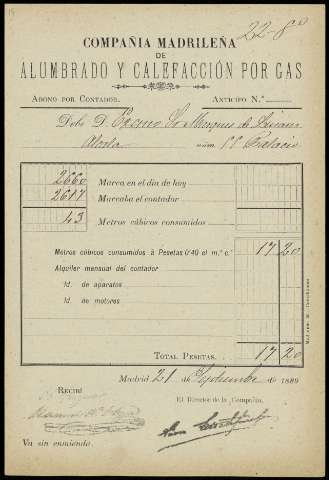 22-8
COMPAÑIA MADRILEÑA
DE
ALUMBRADO Y CALEFACCIÓN POR GAS
ABONO POR CONTADOR. ANTICIPO N.º
Debe D. Excmo Sr Marques de
núm. Palacio
2660 Marca en el dia de hoy
2617 Marcaba el contador
43 Metros cúbicos consumidos
Metros cúbicos consumidos à Pesetas 0'40 el m.³ c.º 17 20
Alquiler mensual del contador
Id. de aparatos
Id. de motores
TOTAL PESETAS. 17 20
Madrid 21 de Septiembre de 1889
RECIBÍ
El Director de la Compañía,
Va sin enmienda.